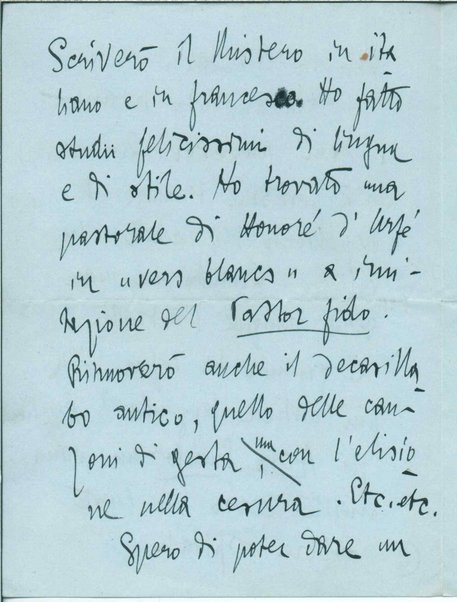 Scriverò il Mistero in ita
liano e in francese. Ho fatto
studii felicissimi di lingua
e di stile. Ho trovato una
pastorale di Honoré d'Urfé
in "vers blancs" a imi-
tazione del Pastor fido.
Rinnoverò anche il decasilla
bo antico, quello delle can-
zoni di gesta, ma con l'elisio
ne nella cesura. Etc. etc.
Spero di poter dare un